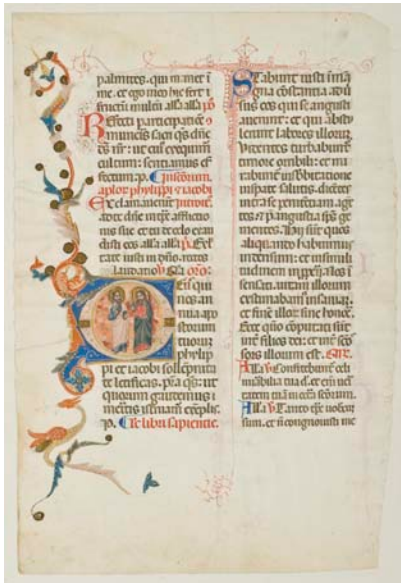 palmites. qui manet ī
me. et ego in eo hic fert ī
fructū multū all'a all'a po
Refecti participatiōe
muneris sacri qs dñe
ds nr: ut cui' exequim̄
cultum: sentiamus ef
fectum. p. In scōrum
aplor phylippi z iacobi
Exclamauerūt Introit'.
ad te dñe in tpe afflictio
nis sue et tu de celo exau
disti eos all'a all'a p. Exl
tate iusti in dño. rectos
laudatio Gl'a oro:
Deus qui
nos an
nua apo
stolorum
tuorum
phylip
pi et iacobi sollēpnita
te letificas. p̄sta qs: ut
quorum gaudemus
meritis instruam̄ exēplis.
p. Lc̄ libri sapientie.
Stabunt iusti ī mag
na cōstantia aduer
sus eos qui se angusti
auerunt: et qui abstu
lerunt labores illorum.
Videntes turbabunt̄
timore horribili: et mi
rabunt̄ in subitatione
insperate salutis. dicētes
intra se penitentiam agē
tes et p̄ angustia spūs ge
mentes. Hii sunt quos
aliquando habuimus
in derisum: et in simili
tudinem inproperii. Nos ī
sensati. uitam illorum
estimabam̄ insaniam.
et finē illor sine honore.
Ecce quō cōputati sūt
int̄ filios dei: et int̄ scōs
sors illorum est.
All'a V Confitebunt̄ celi
mirabilia tua dñe. et eni ueri
tatem tuā in eccl'a scōrum.
All'a V Tanto tpe uobiscum
sum. et nō cognouistis me